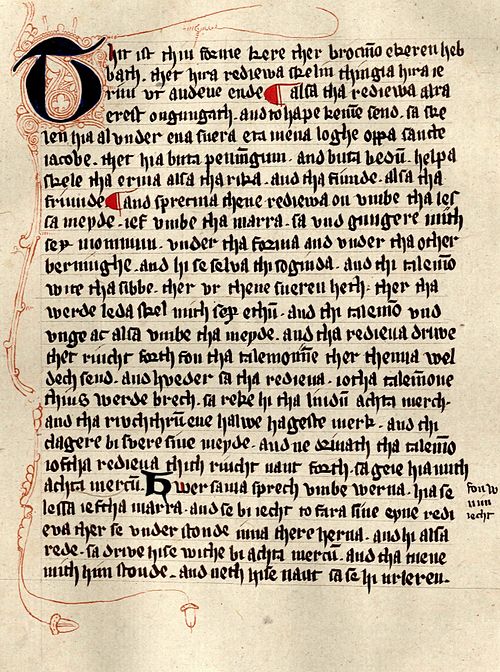 Thit ist thiu forme kere ther brocmō ekeren heb
bath. thet hira rediewa skelin thingia hira ie
rim ut and eue ende ¶ alsa tha rediewa alra
erest ongungath. and to hape kemē send. sa ske
len hia al under ena suera eta mena loghe oppa sancte
iacobe. thet hia buta pennīgum. and buta bedū. helpa
skele tha erma alsa tha rika. and tha fiunde. alsa tha
friunde ¶ and sprecma thene rediewa on umbe tha les
sa meyde. ief umbe tha marra. sa und gungere mith
sex monnum. under tha forma and under tha other
bernughe. and hi se selva thi soginda. and thi talemō
wite tha sibbe. ther ur thene sueren heth. ther tha
werde leda skel mith sex ethū. and thi talemō und
unge ac alsa umbe tha meyde. and tha redieva driwe
thet riucht forth fon tha talemonne ther thenna wel
dech send. and hveder sa tha redieva. iotha talemone
thius werde brech. sa reke hi tha liudū achta merch.
and tha riuchthrūm ene halwe hageste merk. and thi
clagere bi svere sine meyde. and ne drivath tha talemō
ioftha redieva thich riucht naut forth. sa geie hia mith
achta mercū. Hwersama sprech umbe werna. hia se
lessa ieftha marra. and se bi iecht to fara sine eyne redi
eva ther se under stonde inna there herna. and hi alsa
rede. sa drive hi se withe bi achta mercū. and tha niene
mith him stonde. and neth hi se naut sa se hi urleren.